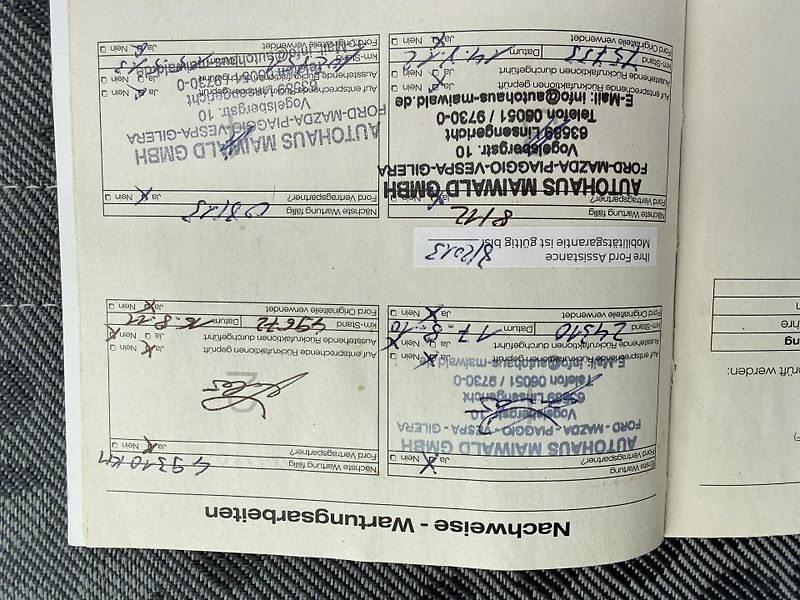 Nachweise - Wartungsarbeiten
Erste Wartung
Ford Vertragspartner? Ja Nein
AUTOHAUS MAIWALD GMBH
FORD - MAZDA - PIAGGIO - VESPA - GILERA
Vogelsbergstr. 10
63589 Linsengericht
Telefon 06051 / 9730-0
E-Mail: info@autohaus-maiwald.de
Auf entsprechende Rückrufaktionen geprüft Ja Nein
Ausstehende Rückrufaktionen durchgeführt Ja Nein
km-Stand 24510 Datum 17.8.10
Ford Originalteile verwendet Ja Nein
Nächste Wartung fällig 49310 KM
Ford Vertragspartner? Ja Nein
2
Auf entsprechende Rückrufaktionen geprüft Ja Nein
Ausstehende Rückrufaktionen durchgeführt Ja Nein
km-Stand 49672 Datum 16.8.11
Ford Originalteile verwendet Ja Nein
Ihre Ford Assistance
Mobilitätsgarantie ist gültig bis: 8/2013
Nächste Wartung fällig 8/12
Ford Vertragspartner? Ja Nein
AUTOHAUS MAIWALD GMBH
FORD-MAZDA-PIAGGIO-VESPA-GILERA
Vogelsbergstr. 10
63589 Linsengericht
Telefon 06051 / 9730-0
E-Mail: info@autohaus-maiwald.de
Auf entsprechende Rückrufaktionen geprüft Ja Nein
Ausstehende Rückrufaktionen durchgeführt Ja Nein
km-Stand Datum
Ford Originalteile verwendet Ja Nein
Nächste Wartung fällig 08/13
Ford Vertragspartner? Ja Nein
AUTOHAUS MAIWALD GMBH
FORD-MAZDA-PIAGGIO-VESPA-GILERA
Vogelsbergstr. 10
63589 Linsengericht
Telefon 06051 / 9730-0
E-Mail: info@autohaus-maiwald.de
Auf entsprechende Rückrufaktionen geprüft Ja Nein
Ausstehende Rückrufaktionen Ja Nein
km-Stand
Ford Originalteile verwendet Ja Nein
prüft werden: